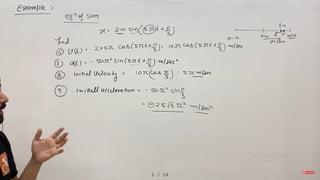 Example :
eqⁿ of SHM
x = 2m sin(5πt + π/3)
find
⑥ V(t) = 2×5π cos(5πt + π/3) = 10π cos(5πt + π/3) m/sec
⑦ a(t) = -50π² sin(5πt + π/3) m/sec²
⑧ Initial velocity = 10π cos π/3 = 5π m/sec
⑨ Initial acceleration = -50π² sin π/3
= -25√3 π² m/sec²
x=-2
2 / 14